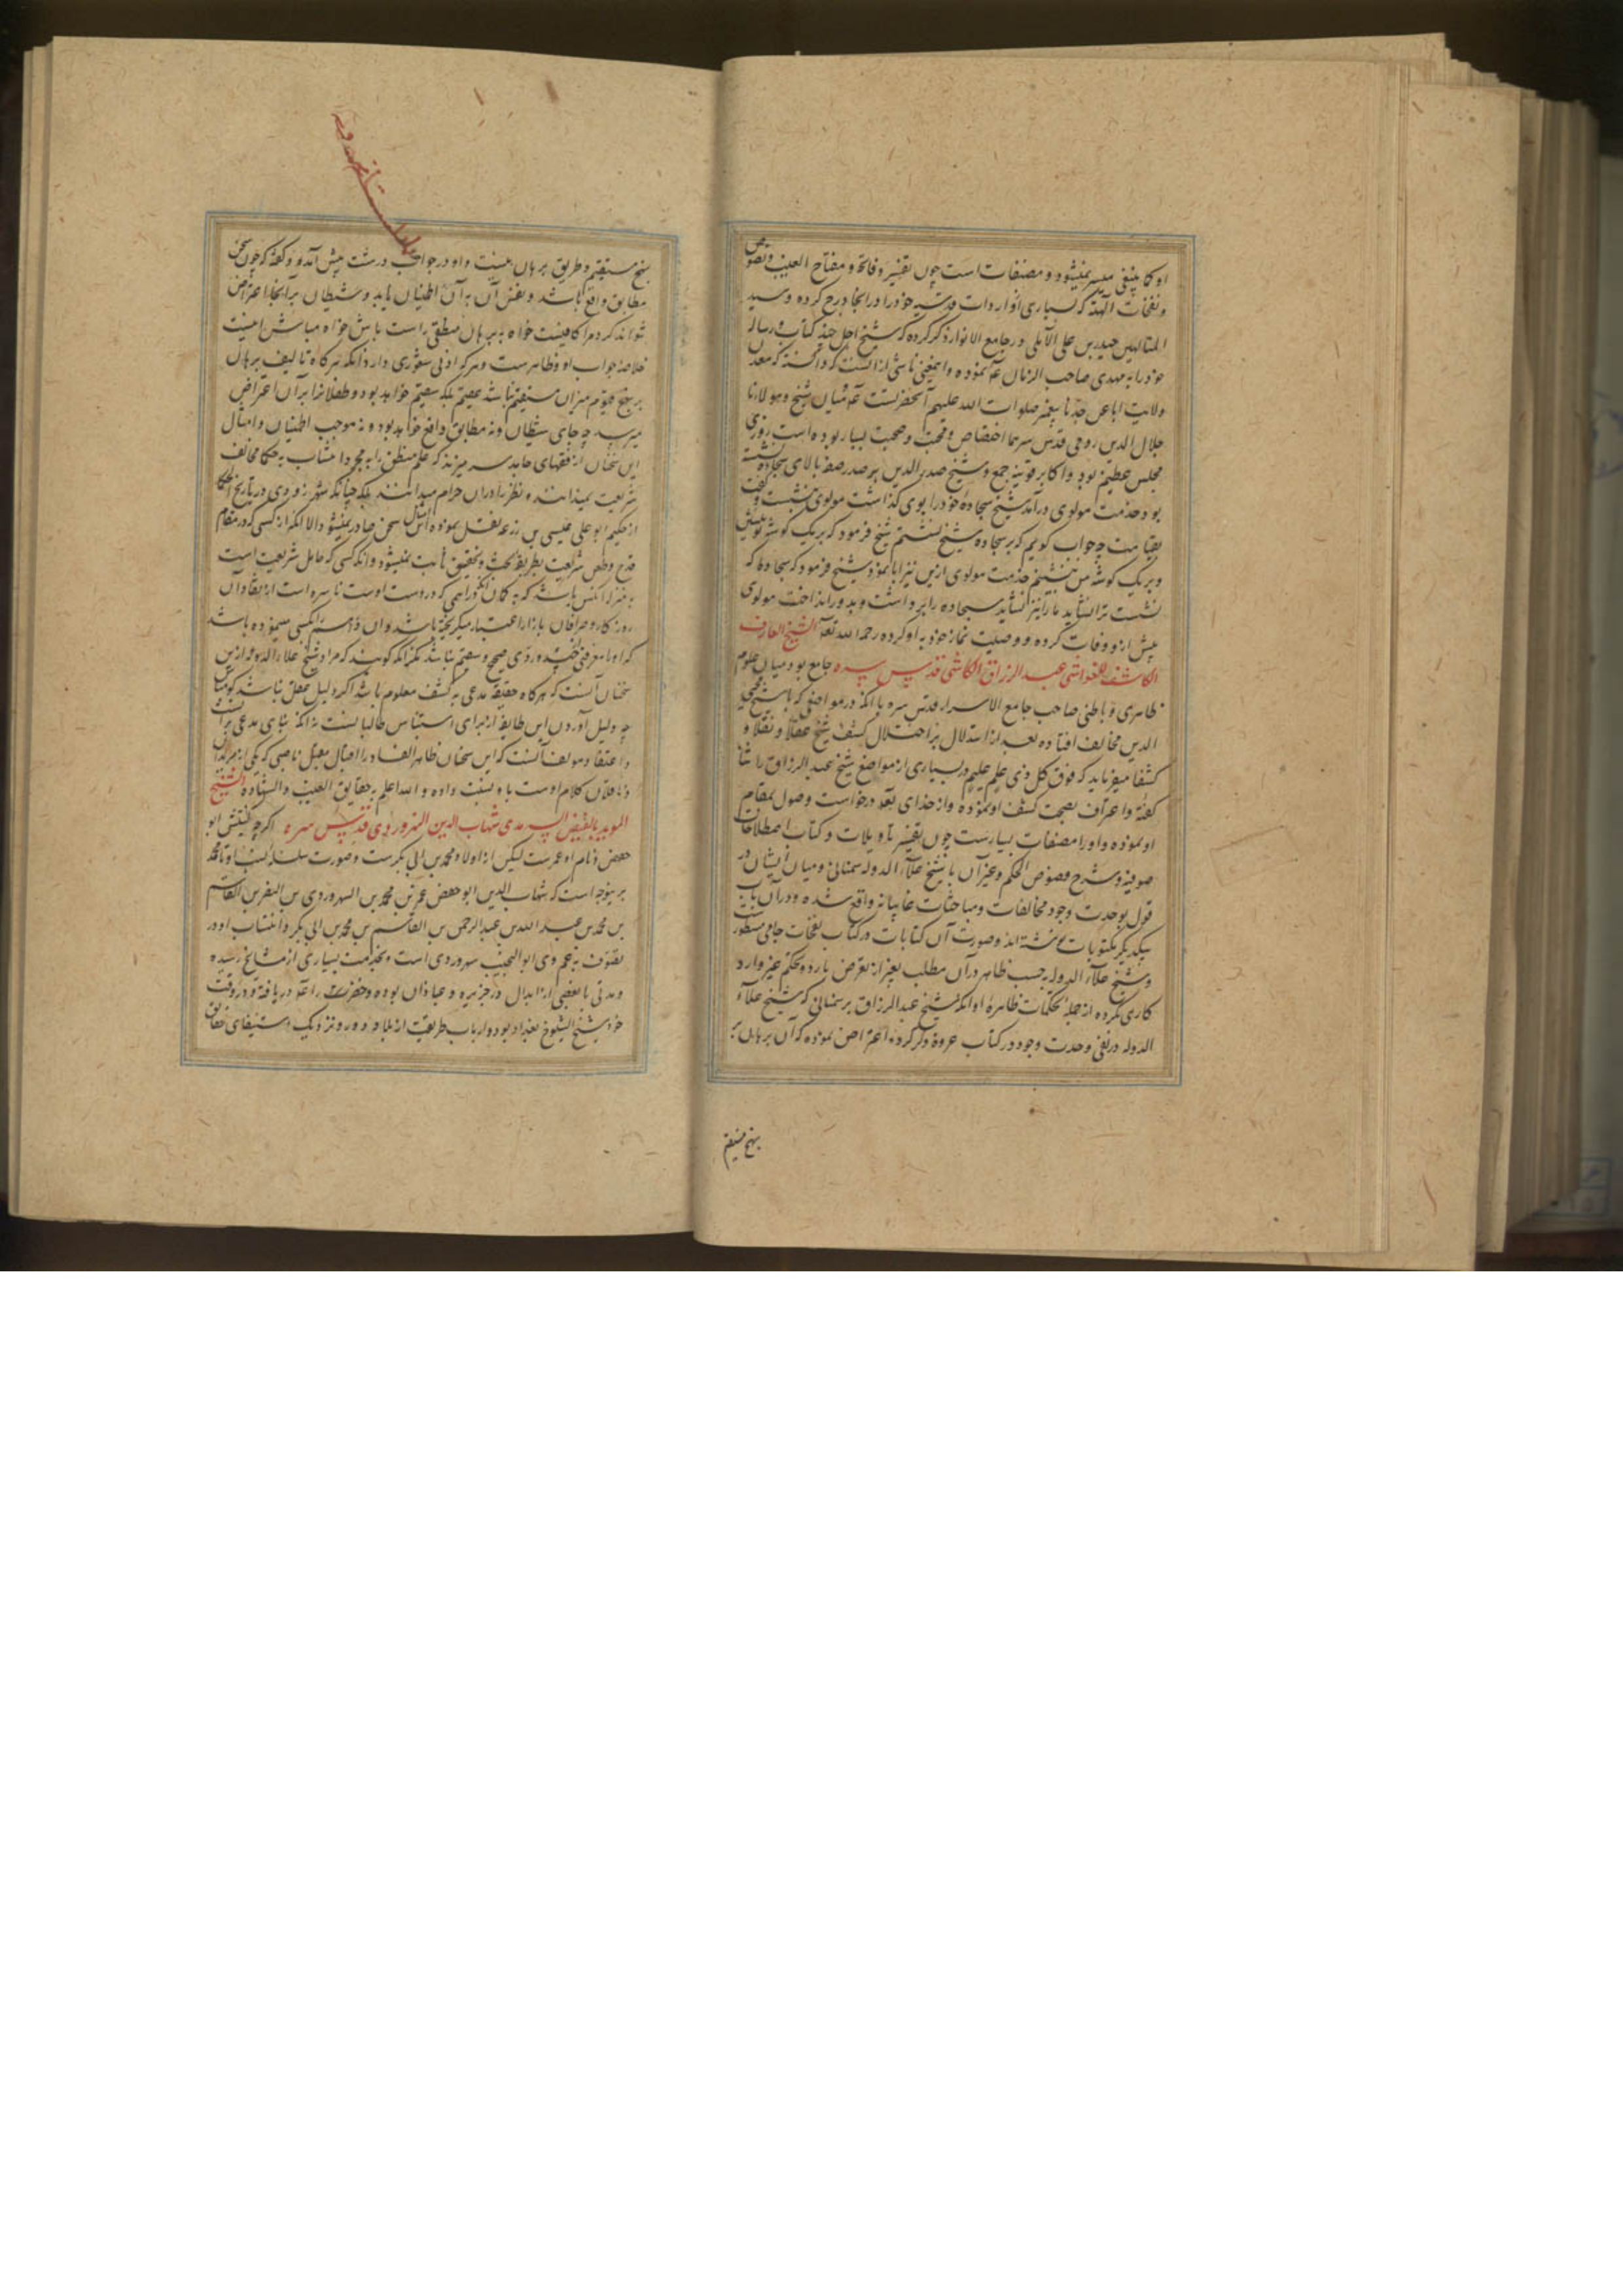 او کما ینبغی میسر نمیشود و مصنفات است چون تفسیر فاتحه و مفتاح الغیب و نصوص
و نفحات الهیه که بسیاری از واردات قدسیه خود را در انجا درج کرده و سید
المتالهین حیدر بن علی الآملی در جامع الانوار ذکر کرده که شیخ اجل چند کتاب و رساله
خود را به مهدی صاحب الزمان نموده و اینمعنی ناشی از آنست که دانسته که معدن
ولایت اباعن جد تا پیغمبر صلوات الله علیهم آنحضرتست میان شیخ و مولانا
جلال الدین رومی قدس سرهما اختصاص و محبت و صحبت بسیار بوده است روزی
مجلس عظیم بود و اکابر قونیه جمع و شیخ صدر الدین بر صدر صفه بالای سجاده نشسته
بود خدمت مولوی درآمد شیخ سجاده خود را بوی گذاشت مولوی ننشست و گفت
بقیامت چه جواب گویم که بر سجاده شیخ نشستم شیخ فرمود که بر یک گوشه تو بنشین
و بر یک گوشه من بنشینم خدمت مولوی ازین نیز ابا نمود شیخ فرمود که سجاده که
نشست ترا نشاید ما را نیز نشاید سجاده را برداشت و بدور انداخت مولوی
پیش ازو وفات کرده و وصیت نماز خود به او کرده رحمه الله الشیخ العارف
الکاشف للغواشی عبد الرزاق الکاشی قدس سره جامع بود میان علوم
ظاهری و باطنی صاحب جامع الاسرار قدس سره با آنکه در مواضع که با شیخ محیی
الدین مخالف افتاده بعد از استدلال بر اختلال کشف شیخ عقلا و نقلا و
کشفا میفرماید که فوق کل ذی علم علیم در بسیاری از مواضع شیخ عبد الرزاق را ثنا
گفته و اعتراف بصحت کشف او نموده و از خدای درخواست وصول بمقام
او نموده و او را مصنفات بسیارست چون تفسیر تاویلات و کتاب اصطلاحات
صوفیه و شرح فصوص الحکم و غیر آن با شیخ علاء الدوله سمنانی و میان ایشان در
قول بوحدت وجود مخالفات و مباحثات غایبانه واقع شده و در آن باب
بیکدیگر مکتوبات نوشته اند و صورت آن کتابات در کتاب نفحات جامی مسطور
و شیخ علاء الدوله حسب ظاهر در آن مطلب بغیر از تعرض بارد و تحکم غیر وارد
کاری نکرده از جمله تحکمات ظاهره او آنکه شیخ عبد الرزاق بر سمنانی که شیخ علاء
الدوله در نفی وحدت وجود در کتاب عروة ذکر کرده اعتراض نموده که آن برهان بر
نهج مستقیم
نهج مستقیم و طریق برهان نیست و او در جواب درشت پیش آمده و گفته که چون سخن
مطابق واقع باشد و نفس آن به آن اطمینان یابد و شیطان بر انجا اعتراض
نتواند کرد مرا کافیست خواه به برهان منطقی راست باش خواه مباش
خلاصه جواب او و ظاهرست و هر که ادنی شعوری دارد آنکه هرگاه تالیف برهان
بر نهج قویم میزان مستقیم نباشد عقیم بلکه سقیم خواهد بود و طفلانرا بر آن اعتراض
میرسد چه جای شیطان و نه مطابق واقع خواهد بود و نه موجب اطمینان و امثال
این سخنان از فقهای جامد سر میزند که علم منطق را به مجرد انتساب به حکما مخالف
شریعت میدانند و نظر را در آن حرام میدانند بلکه چنانکه شهرزوری در تاریخ الحکما
از حکیم ابو علی عیسی بن زرعه نقل نموده امثال سخن صادر نمیشود الا آنکه از کسی که در مقام
قدح و طعن شریعت بطریق بحث و تحقیق ثابت نمیشود و آنکه کسی که حامل شریعت است
به منزله آنکس باشد که به گمان آنکه دراهمی که در دست اوست ناسره است از نقادان
روزگار و صرافان بازار اعتبار میگریخته باشد و آن دراهم بکسی مینموده باشد
که او را معرفتی بجید و ردی صحیح و سقیم نباشد مگر آنکه گویند که مراد شیخ علاء الدوله ازین
سخنان آنست که هرگاه حقیقت مدعی به کشف معلوم باشد اگر دلیل عقلی نباشد گو مباش
چه دلیل آوردن این طایفه از برای استیناس طالبانست نه آنکه بنای مدعی بر آنست
و اعتقاد مولف آنست که این سخنان ظاهر الفساد را اقبال مقبل ناصبی که یکی از مریدان
و ناقلان کلام اوست باو نسبت داده و الله اعلم به حقایق الغیب و الشهاده الشیخ
الموید بالفیض السرمدی شهاب الدین السهروردی قدس سره اگرچه کنیتش ابو
حفص و نام او عمرست لیکن از اولاد محمد بن ابی بکرست و صورت سلسله نسب او تا محمد
برینوجه است که شهاب الدین ابو حفص عمر بن محمد بن السهروردی بن النضر بن القاسم
بن محمد بن عبد الله بن عبد الرحمن بن القاسم بن محمد بن ابی بکر و انتساب او در
تصوف به عم وی ابو النجیب سهروردی است و بخدمت بسیاری از مشایخ رسیده
و مدتی با بعضی از ابدال در جزیره عبادان بوده و خضر را دریافته و در وقت
خود شیخ الشیوخ بغداد بود و ارباب طریقت از بلاد دور و نزدیک استیفای حقایق